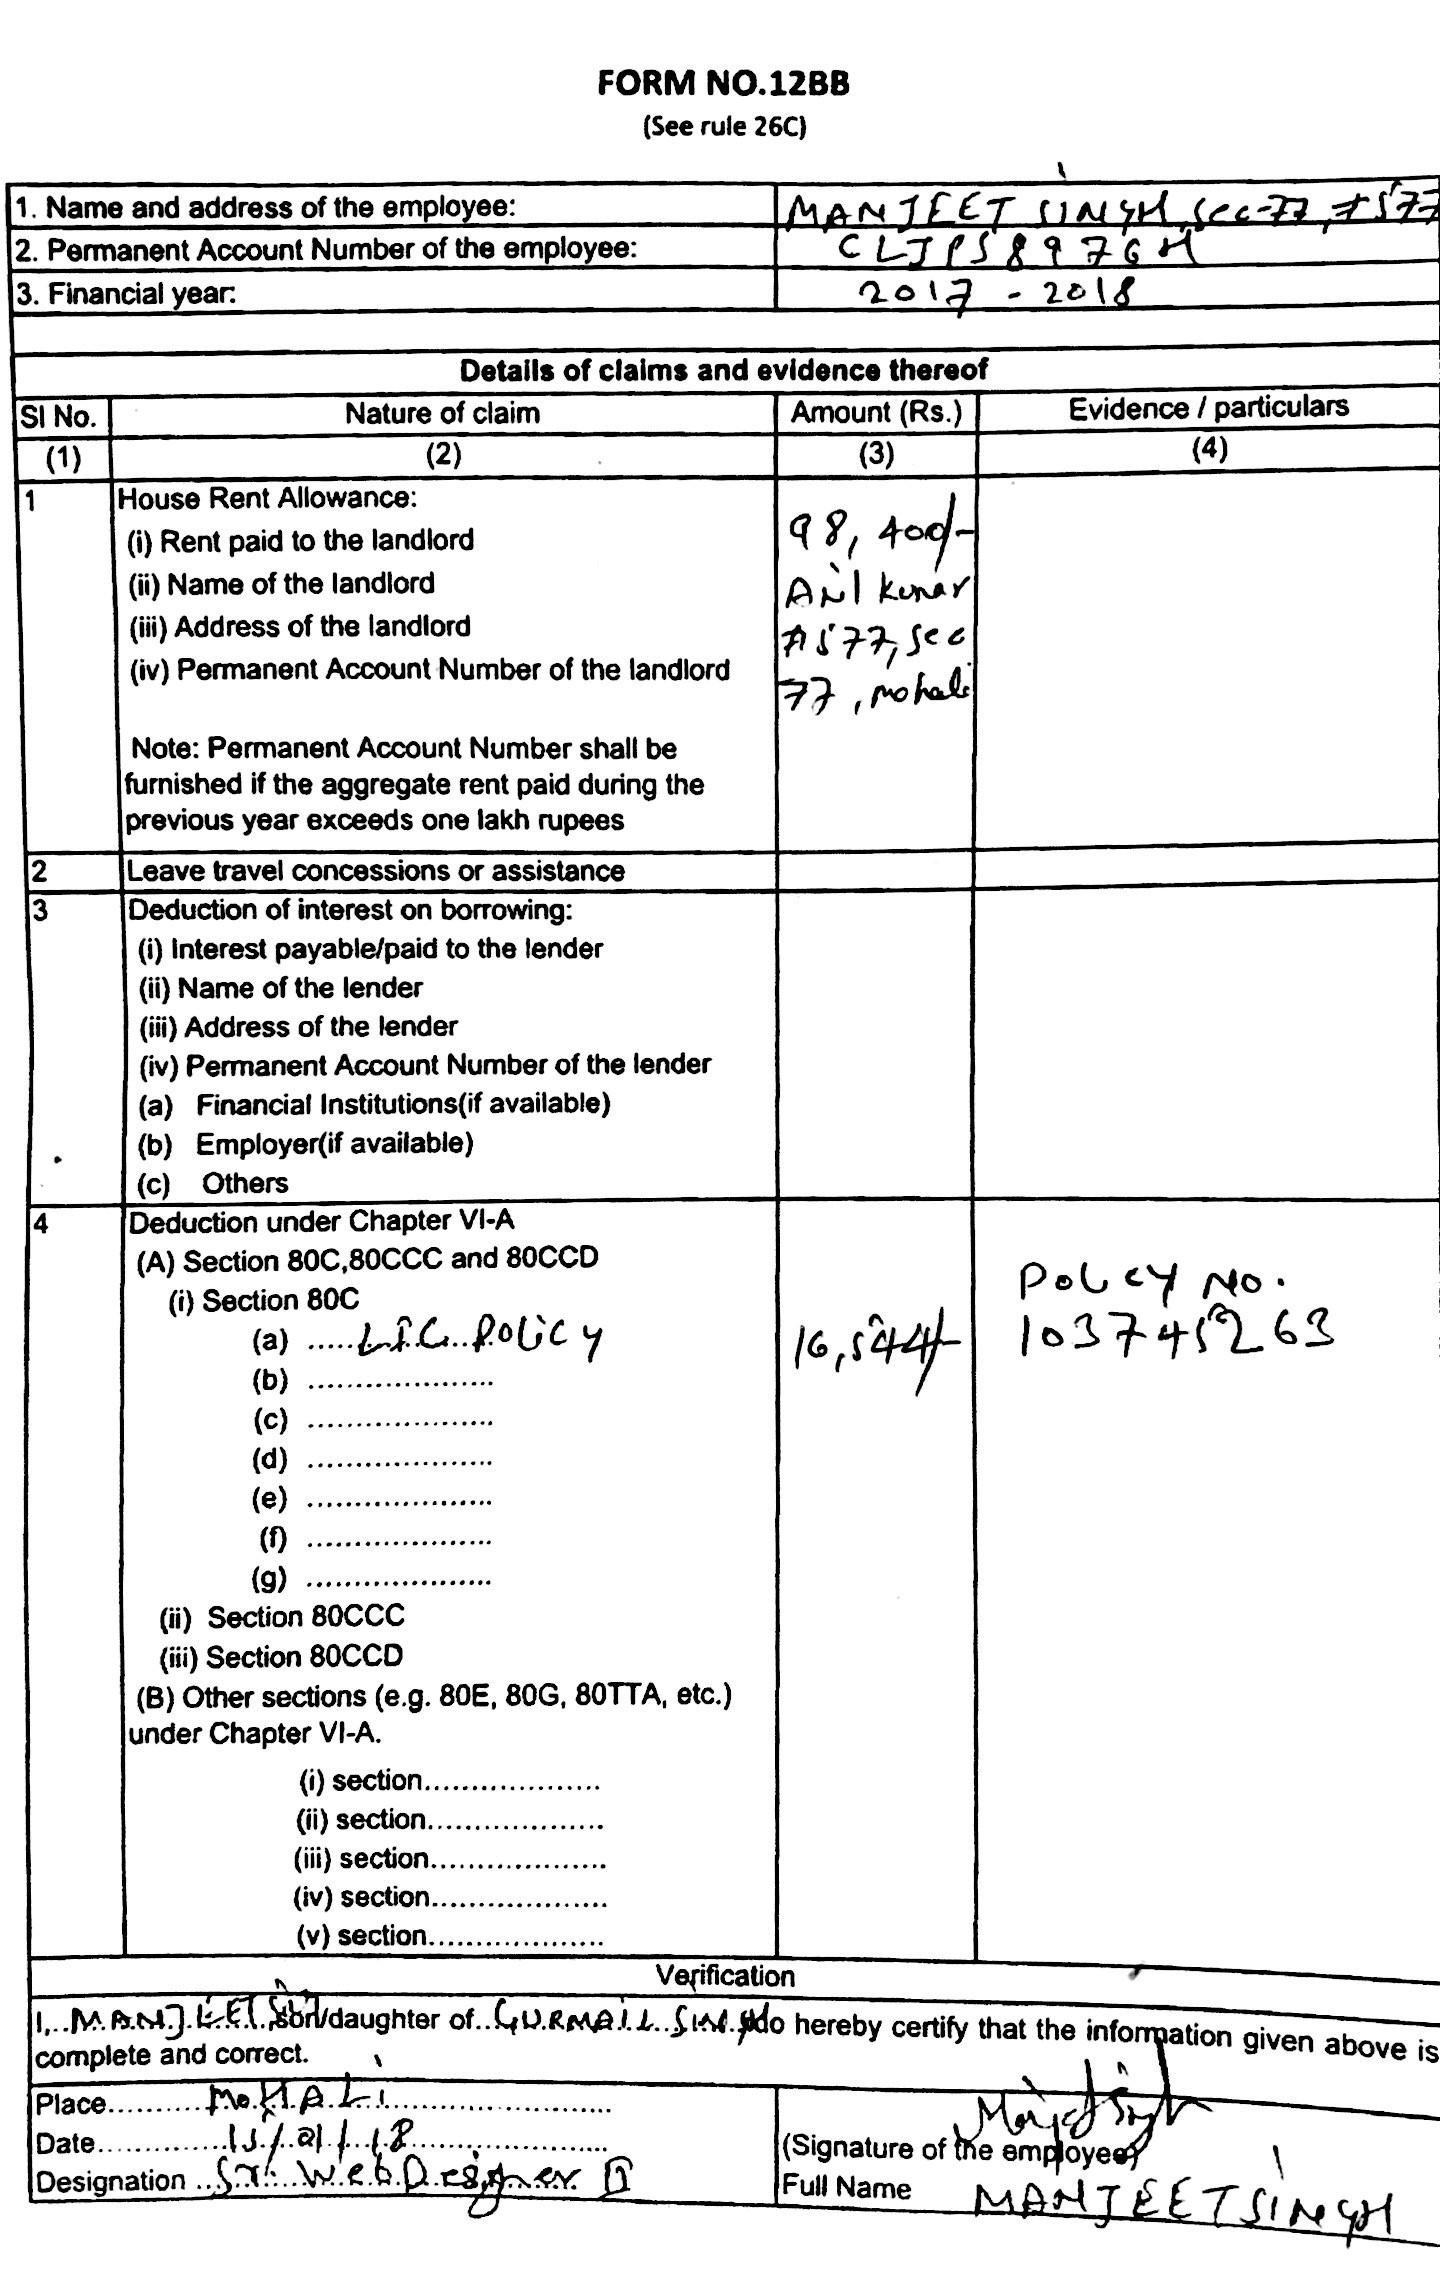 FORM NO.12BB
(See rule 26C)
1. Name and address of the employee: MANJEET SINGH, Sec-77, #577
2. Permanent Account Number of the employee: CLJPS8976H
3. Financial year: 2017 - 2018
Details of claims and evidence thereof
Sl No. Nature of claim Amount (Rs.) Evidence / particulars
(1) (2) (3) (4)
1 House Rent Allowance:
(i) Rent paid to the landlord 98,400/-
(ii) Name of the landlord Anil Kumar
(iii) Address of the landlord #577, Sec
(iv) Permanent Account Number of the landlord 77, mohali
Note: Permanent Account Number shall be
furnished if the aggregate rent paid during the
previous year exceeds one lakh rupees
2 Leave travel concessions or assistance
3 Deduction of interest on borrowing:
(i) Interest payable/paid to the lender
(ii) Name of the lender
(iii) Address of the lender
(iv) Permanent Account Number of the lender
(a) Financial Institutions(if available)
(b) Employer(if available)
(c) Others
4 Deduction under Chapter VI-A
(A) Section 80C,80CCC and 80CCD
(i) Section 80C POLICY NO.
(a) .....L.I.C. Policy 16,544/- 103745263
(b) ....................
(c) ....................
(d) ....................
(e) ....................
(f) ....................
(g) ....................
(ii) Section 80CCC
(iii) Section 80CCD
(B) Other sections (e.g. 80E, 80G, 80TTA, etc.)
under Chapter VI-A.
(i) section...................
(ii) section...................
(iii) section...................
(iv) section...................
(v) section...................
Verification
I,..MANJEET Singh son/daughter of..GURMAIL SINGH do hereby certify that the information given above is
complete and correct.
Place..........MOHALI..........
Date..........15/01/18..........
Designation ..Sr. Web Designer
(Signature of the employee)
Full Name MANJEET SINGH